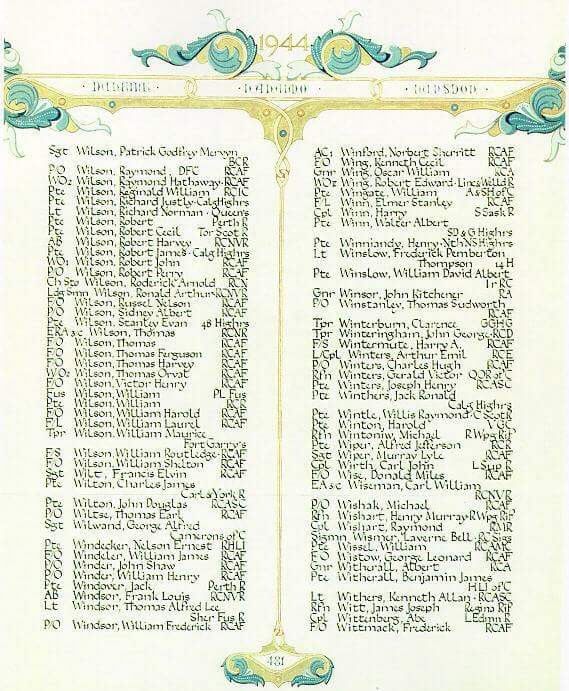 1944
Sgt Wilson, Patrick Godfrey Mervyn
BCR
P/O Wilson, Raymond, DFC RCAF
WO2 Wilson, Raymond Hathaway·RCAF
Pte Wilson, Reginald William RCIC
Pte Wilson, Richard Justly·CalgHighrs
Lt Wilson, Richard Norman·Queen's
Pte Wilson, Robert Perth R
Pte Wilson, Robert Cecil Tor Scot R
AB Wilson, Robert Harvey RCNVR
Pte Wilson, Robert James·Calg Highrs
WO1 Wilson, Robert John RCAF
P/O Wilson, Robert Perry RCAF
Ch Sto Wilson, Roderick Arnold RCN
Ldg Smn Wilson, Ronald Arthur·RCNVR
F/O Wilson, Russel Nelson RCAF
P/O Wilson, Sidney Albert RCAF
Pte Wilson, Stanley Evan 48 Highrs
ERA3c Wilson, Thomas RCNR
F/O Wilson, Thomas RCAF
F/O Wilson, Thomas Ferguson RCAF
F/O Wilson, Thomas Harvey RCAF
WO2 Wilson, Thomas Orval RCAF
F/O Wilson, Victor Henry RCAF
Fus Wilson, William PL Fus
Pte Wilson, William RCR
F/O Wilson, William Harold RCAF
F/L Wilson, William Laurel RCAF
Tpr Wilson, William Maurice
Fort Garry's
F/S Wilson, William Routledge·RCAF
F/O Wilson, William Shelton RCAF
Sgt Wilt, Francis Elvin RCAF
Pte Wilton, Charles James
Carl & York R
Pte Wilton, John Douglas RCASC
P/O Wiltse, Thomas Earl RCAF
Sgt Wilwand, George Alfred
Camerons of C
Pte Windecker, Nelson Ernest RHLI
F/O Windeler, William James RCAF
P/O Winder, John Shaw RCAF
P/O Winder, William Henry RCAF
Pte Windover, Jack Perth R
AB Windsor, Frank Louis RCNVR
Lt Windsor, Thomas Alfred Lee
Sher Fus R
P/O Windsor, William Frederick RCAF
AC1 Winford, Norbert Sherritt RCAF
F/O Wing, Kenneth Cecil RCAF
Gnr Wing, Oscar William RCA
WO2 Wing, Robert Edward·Lincs&Welld R
Pte Wingate, William A&SH of C
F/L Winn, Elmer Stanley RCAF
Cpl Winn, Harry S Sask R
Pte Winn, Walter Albert
SD & G Highrs
Pte Winniandy, Henry·Nth NS Highrs
Lt Winslow, Frederick Pemberton
Thompson 14 H
Pte Winslow, William David Albert
1r RC
Gnr Winsor, John Kitchener RA
P/O Winstanley, Thomas Sudworth
RCAF
Tpr Winterburn, Clarence GGHG
Tpr Winteringham, John George·RCD
F/S Wintermute, Harry A. RCAF
L/Cpl Winters, Arthur Emil RCE
P/O Winters, Charles Hugh RCAF
Rfn Winters, Gerald Victor QOR of C
Pte Winters, Joseph Henry RCASC
Pte Winthers, Jack Ronald
Calg Highrs
Pte Wintle, Willis Raymond·C Scot R
Pte Winton, Harold VGC
Rfn Wintoniw, Michael R Wpg Rif
Pte Wiper, Alfred Jefferson RCR
Sgt Wiper, Murray Lyle RCAF
Cpl Wirth, Carl John L Sup R
F/O Wise, Donald Miles RCAF
EA3c Wiseman, Carl William
RCNVR
P/O Wishak, Michael RCAF
Rfn Wishart, Henry Murray·R Wpg Rif
Cpl Wishart, Raymond RMR
Sigmn Wismer, Laverne Bell·RC Sigs
Pte Wissel, William RCAMC
F/O Wistow, George Leonard RCAF
Gnr Witherall, Albert RCA
Pte Witherall, Benjamin James
HLI of C
Lt Withers, Kenneth Allan·RCASC
Rfn Witt, James Joseph Regina Rif
Cpl Wittenberg, Abe L Edmn R
F/O Wittmack, Frederick RCAF
481